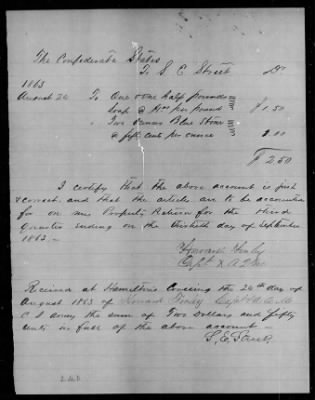 The Confederate States
To S. E. Street Dr
1863
August 24 To One & one half pounds
Soap @ per pound $1.50
" Two ounces Blue Stone
@ fifty cents per ounce 1.00
$ 2.50
I certify that the above account is just
& correct. and that the articles are to be accounted
for on my Property Return for the third
Quarter ending on the thirtieth day of September
1863.—
Capt & A.Q.M.
Received at Hamiltons Crossing the 24th day of
August 1863 of Capt & A.Q.M.
C. S. Army the sum of Two Dollars and fifty
cents in full of the above account —
S. E. Street